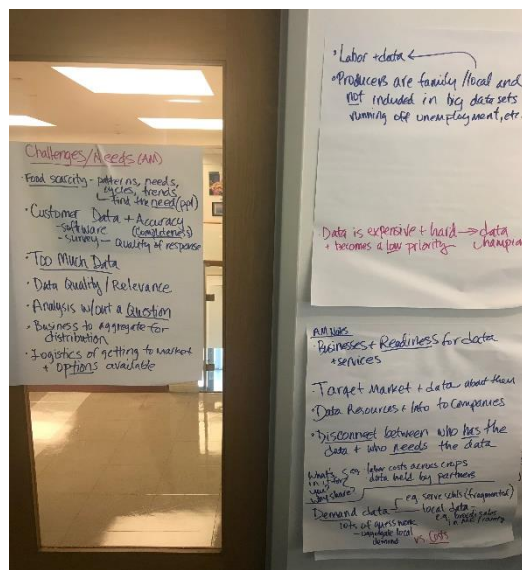 Challenges/Needs (AM)
• Food scarcity - patterns, needs,
cycles, trends
find the need (ppl)
• Customer Data + Accuracy
- software (completeness)
- survey - Quality of response
• Too Much Data
• Data Quality/Relevance
• Analysis w/out a Question
• Business to aggregate for
distribution
• Logistics of getting to market
+ options available
• Labor + data
• Producers are family/local and
not included in big data sets
running off unemployment, etc.
Data is expensive + hard → data
+ becomes a low priority champio
AM Notes
• Businesses + Readiness for data
+ services
• Target Market + data about them
• Data Resources + Info to Companies
• Disconnect between who has the
data + who needs the data
What's in it for you? why share?
eg labor costs across crops
data held by partners
Demand data
eg. serve walls (fragmented)
local data -
lots of guess work
- aggregate local
demand
vs. Costs